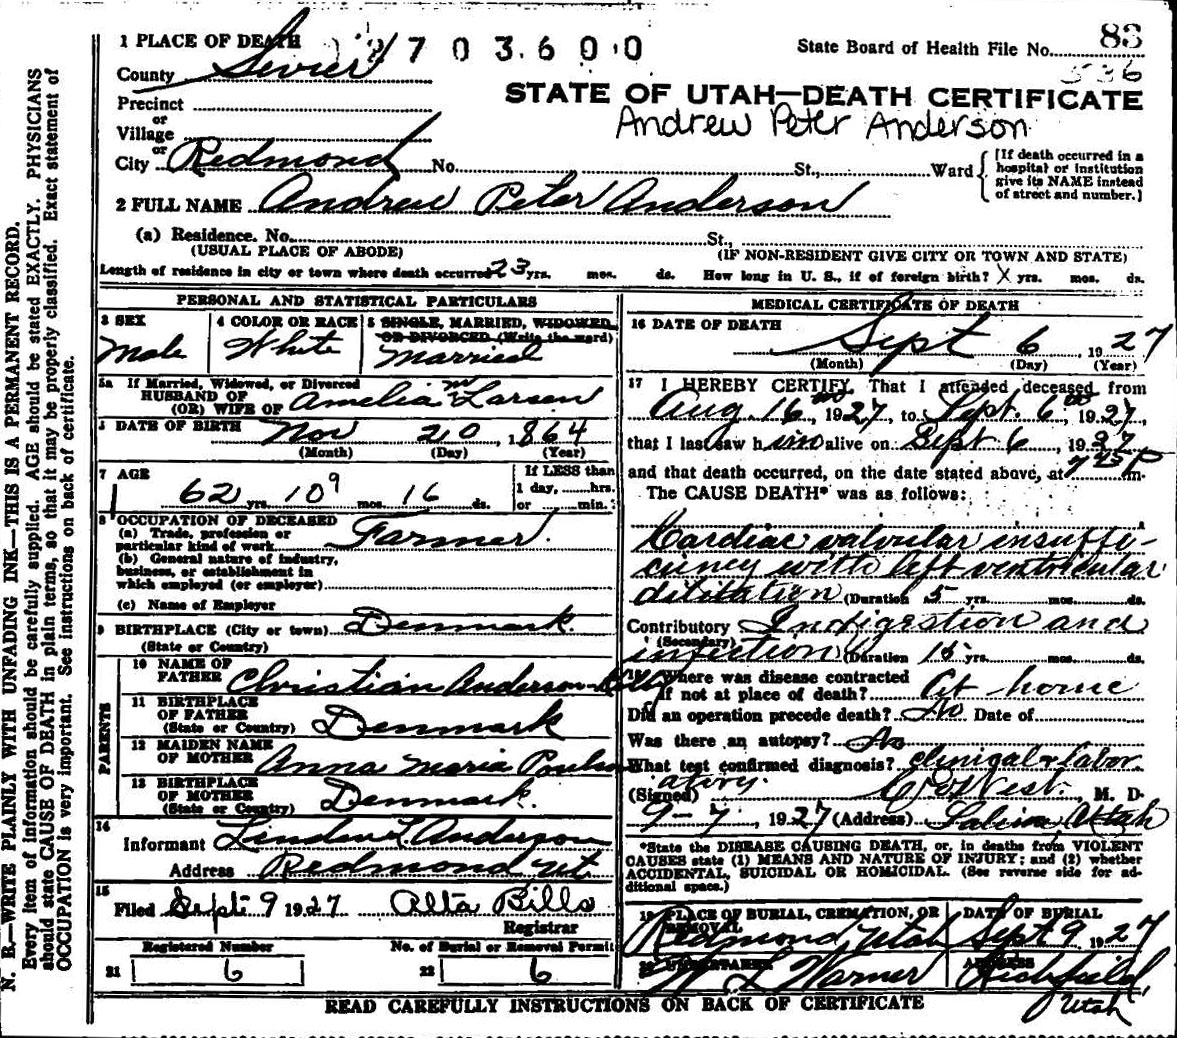 N. B.—WRITE PLAINLY WITH UNFADING INK—THIS IS A PERMANENT RECORD.
Every item of information should be carefully supplied. AGE should be stated EXACTLY. PHYSICIANS
should state CAUSE OF DEATH in plain terms, so that it may be properly classified. Exact statement of
OCCUPATION is very important. See instructions on back of certificate.
1 PLACE OF DEATH
703600
State Board of Health File No. 83
County Sevier
536
STATE OF UTAH—DEATH CERTIFICATE
Precinct
Andrew Peter Anderson
or
Village
or
City Redmond No. St., Ward
[If death occurred in a
hospital or institution
give its NAME instead
of street and number.]
2 FULL NAME Andrew Peter Anderson
(a) Residence. No. St.,
(USUAL PLACE OF ABODE) (IF NON-RESIDENT GIVE CITY OR TOWN AND STATE)
Length of residence in city or town where death occurred 23 yrs. mos. ds. How long in U. S., if of foreign birth? X yrs. mos. ds.
PERSONAL AND STATISTICAL PARTICULARS
3 SEX
Male
4 COLOR OR RACE
White
5 SINGLE, MARRIED, WIDOWED,
OR DIVORCED (Write the word)
Married
5a If Married, Widowed, or Divorced
HUSBAND OF
(OR) WIFE OF Amelia M Larsen
DATE OF BIRTH Nov 20, 1864
(Month) (Day) (Year)
7 AGE
62 yrs. 10 9 mos. 16 ds.
If LESS than
1 day, hrs.
or min.
8 OCCUPATION OF DECEASED
(a) Trade, profession or
particular kind of work Farmer.
(b) General nature of industry,
business, or establishment in
which employed (or employer)
(c) Name of Employer
9 BIRTHPLACE (City or town) Denmark.
(State or Country)
PARENTS
10 NAME OF
FATHER Christian Anderson
11 BIRTHPLACE
OF FATHER
(State or Country) Denmark
12 MAIDEN NAME
OF MOTHER Anna Maria Poulsen
13 BIRTHPLACE
OF MOTHER
(State or Country) Denmark.
14
Informant L. Anderson
Address Redmond Ut
15
Filed Sept 9 1927 Alta Bills
Registrar
Registered Number No. of Burial or Removal Permit
21 6 22 6
MEDICAL CERTIFICATE OF DEATH
16 DATE OF DEATH
Sept 6, 1927
(Month) (Day) (Year)
17 I HEREBY CERTIFY, That I attended deceased from
Aug. 16, 1927, to Sept. 6, 1927,
that I last saw him alive on Sept 6, 1927
and that death occurred, on the date stated above, at 7 25 P m.
The CAUSE DEATH* was as follows:
Cardiac valvular insuffi-
ciency with left ventricular
dilitation (Duration 5 yrs. mos. ds.
Contributory Indigestion and
(Secondary)
infection (Duration 15 yrs. mos. ds.
18 Where was disease contracted
if not at place of death? At home
Did an operation precede death? No Date of
Was there an autopsy? No
What test confirmed diagnosis? Clinical & Labor
atory.
(Signed) West., M. D.
9-7, 1927 (Address) Salina, Utah
*State the DISEASE CAUSING DEATH, or, in deaths from VIOLENT
CAUSES state (1) MEANS AND NATURE OF INJURY; and (2) whether
ACCIDENTAL, SUICIDAL OR HOMICIDAL. (See reverse side for ad-
ditional space.)
19 PLACE OF BURIAL, CREMATION, OR
REMOVAL
Redmond, Utah
DATE OF BURIAL
Sept 9 1927
20 UNDERTAKER
W L Warner
ADDRESS
Richfield,
Utah
READ CAREFULLY INSTRUCTIONS ON BACK OF CERTIFICATE